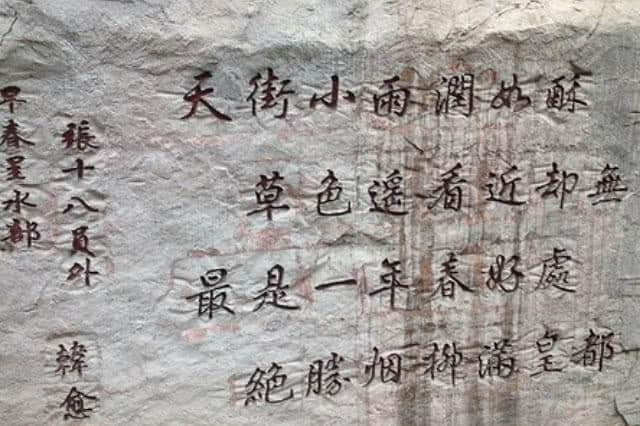 早春呈水部
張十八員外
韓愈
天街小雨潤如酥
草色遥看近却無
最是一年春好處
絕勝烟柳滿皇都